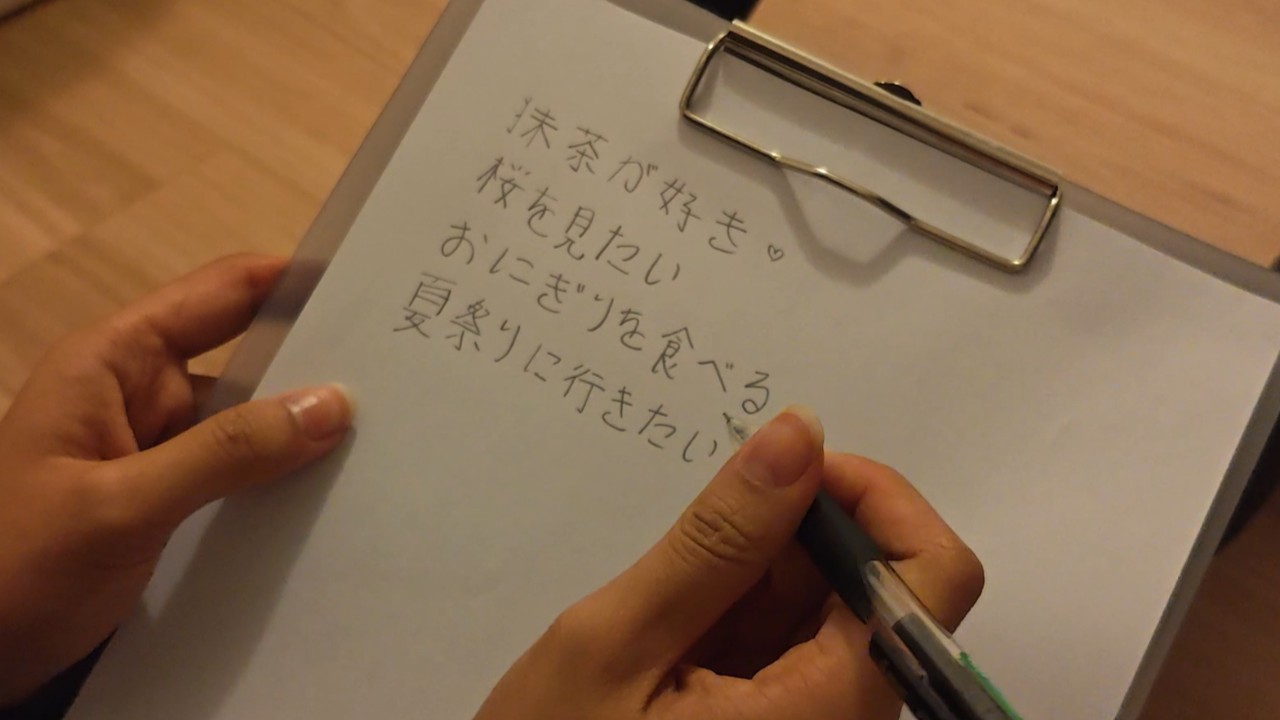 抹茶が好き♡
桜を見たい
おにぎりを食べる
夏祭りに行きたい